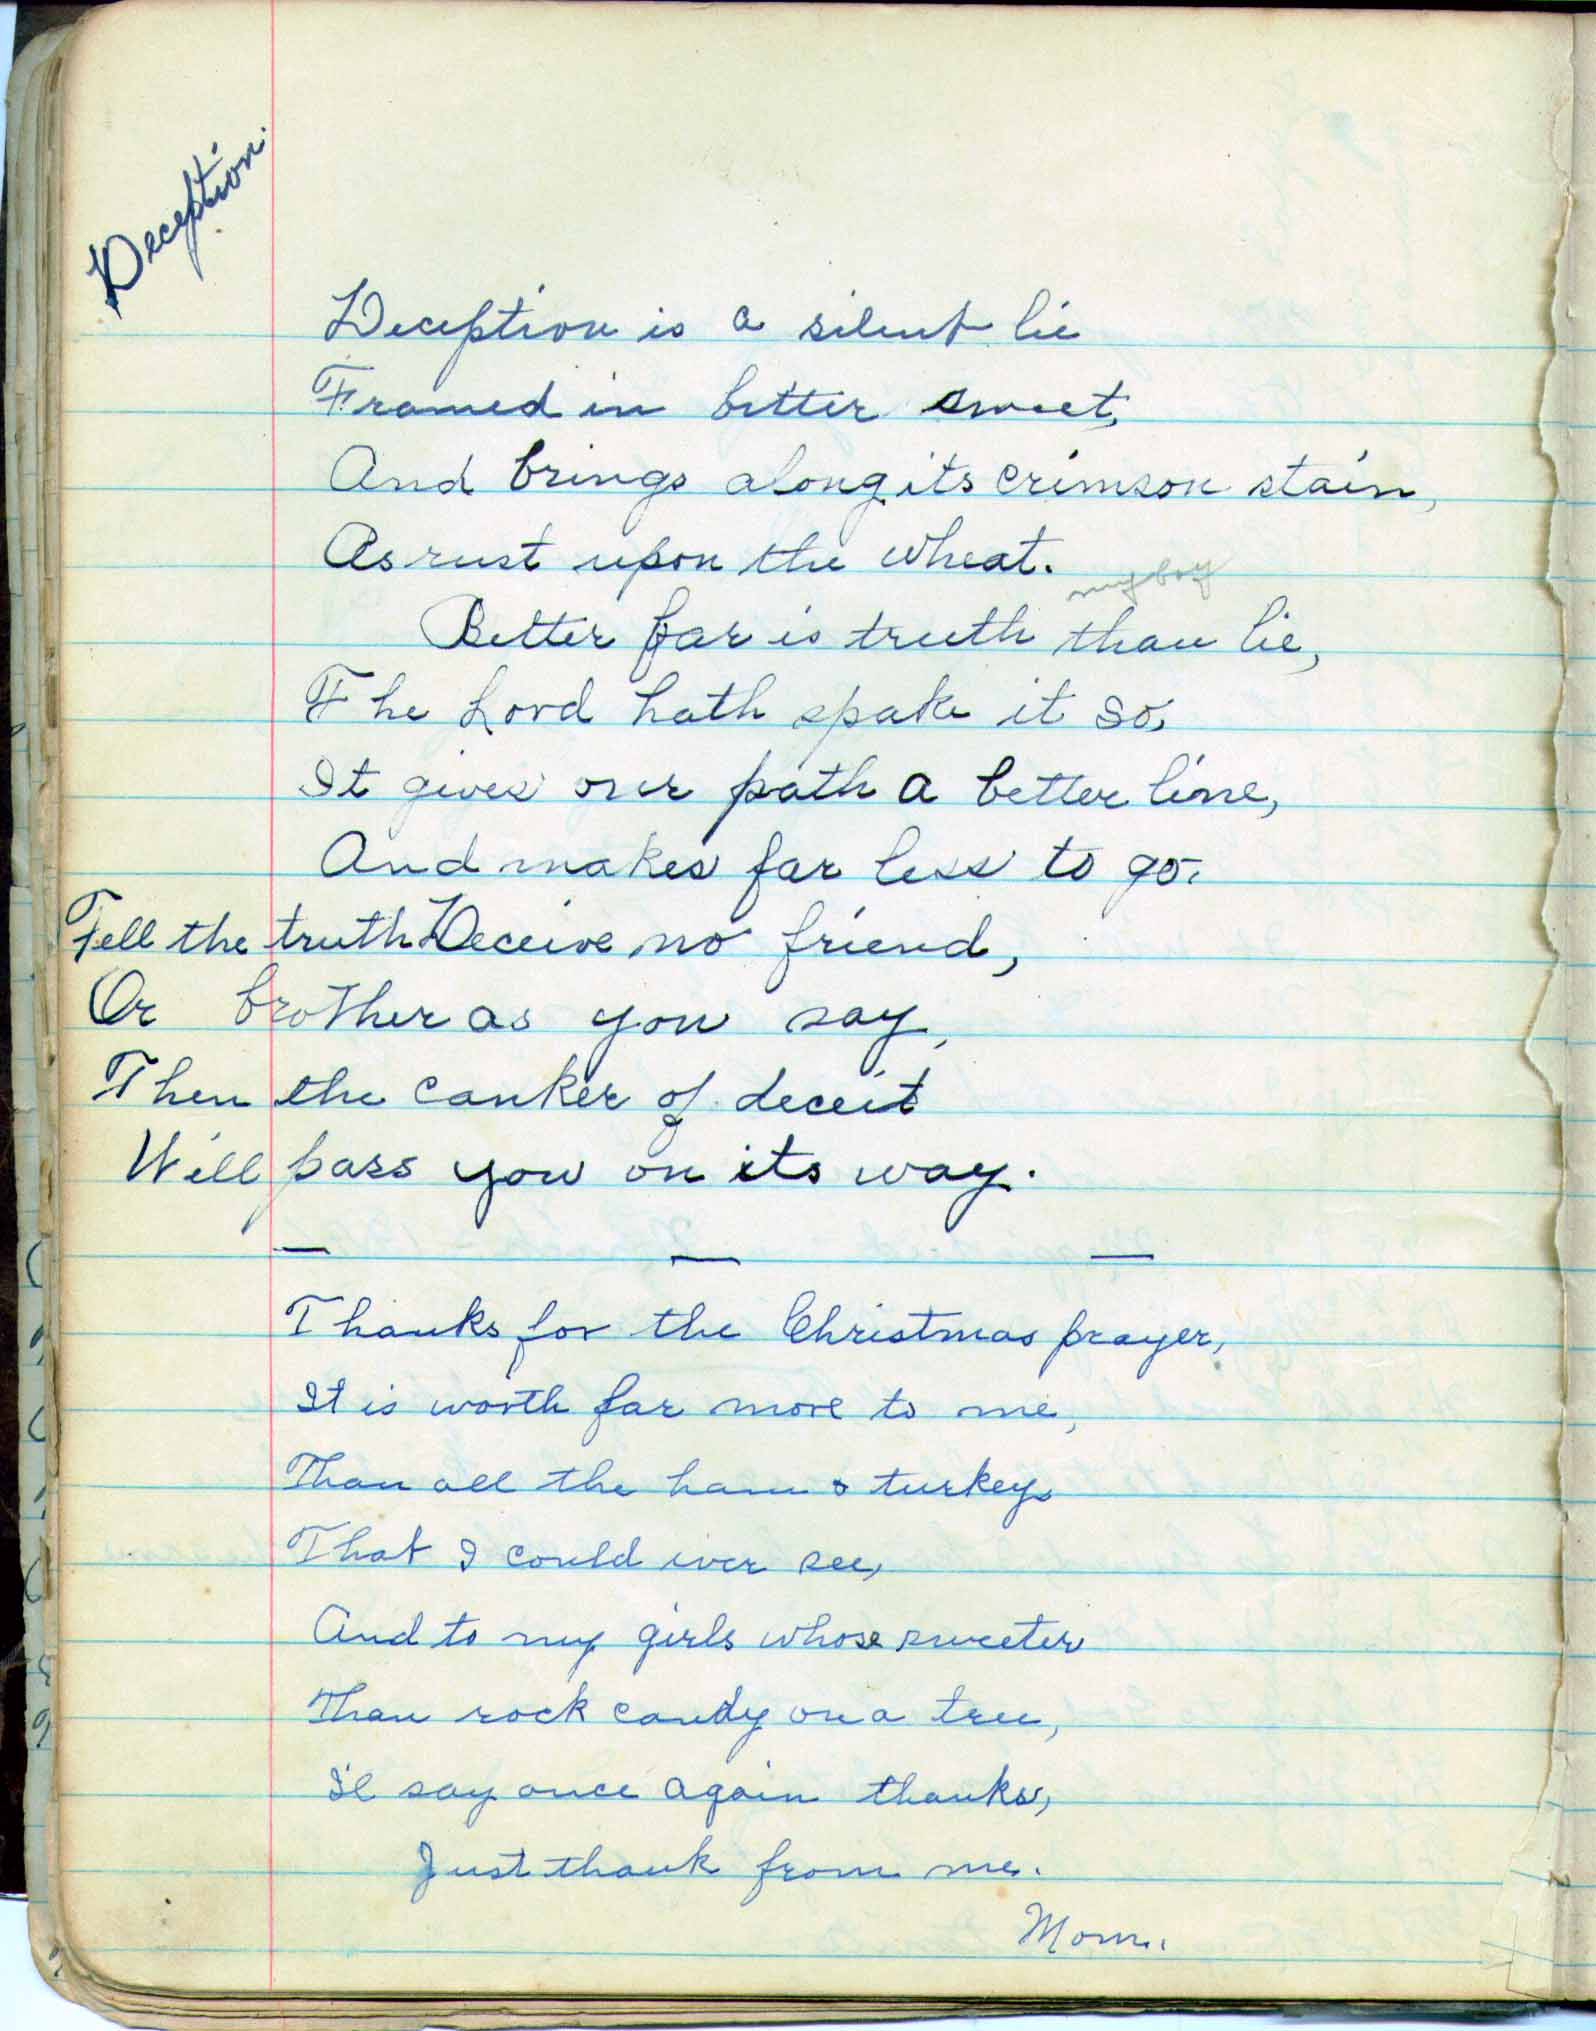 Deception.
Deception is a silent lie
Framed in bitter sweet,
And brings along its crimson stain,
As rust upon the wheat.
my boy
Better far is truth than lie,
The Lord hath spake it so,
It gives our path a better line,
And makes far less to go.
Tell the truth Deceive no friend,
Or brother as you say,
Then the canker of deceit
Will pass you on its way.
— — —
Thanks for the Christmas prayer,
It is worth far more to me,
Than all the ham & turkeys
That I could ever see,
And to my girls whose sweeter
Than rock candy on a tree,
I'l say once again thanks,
Just thank from me.
Mom.